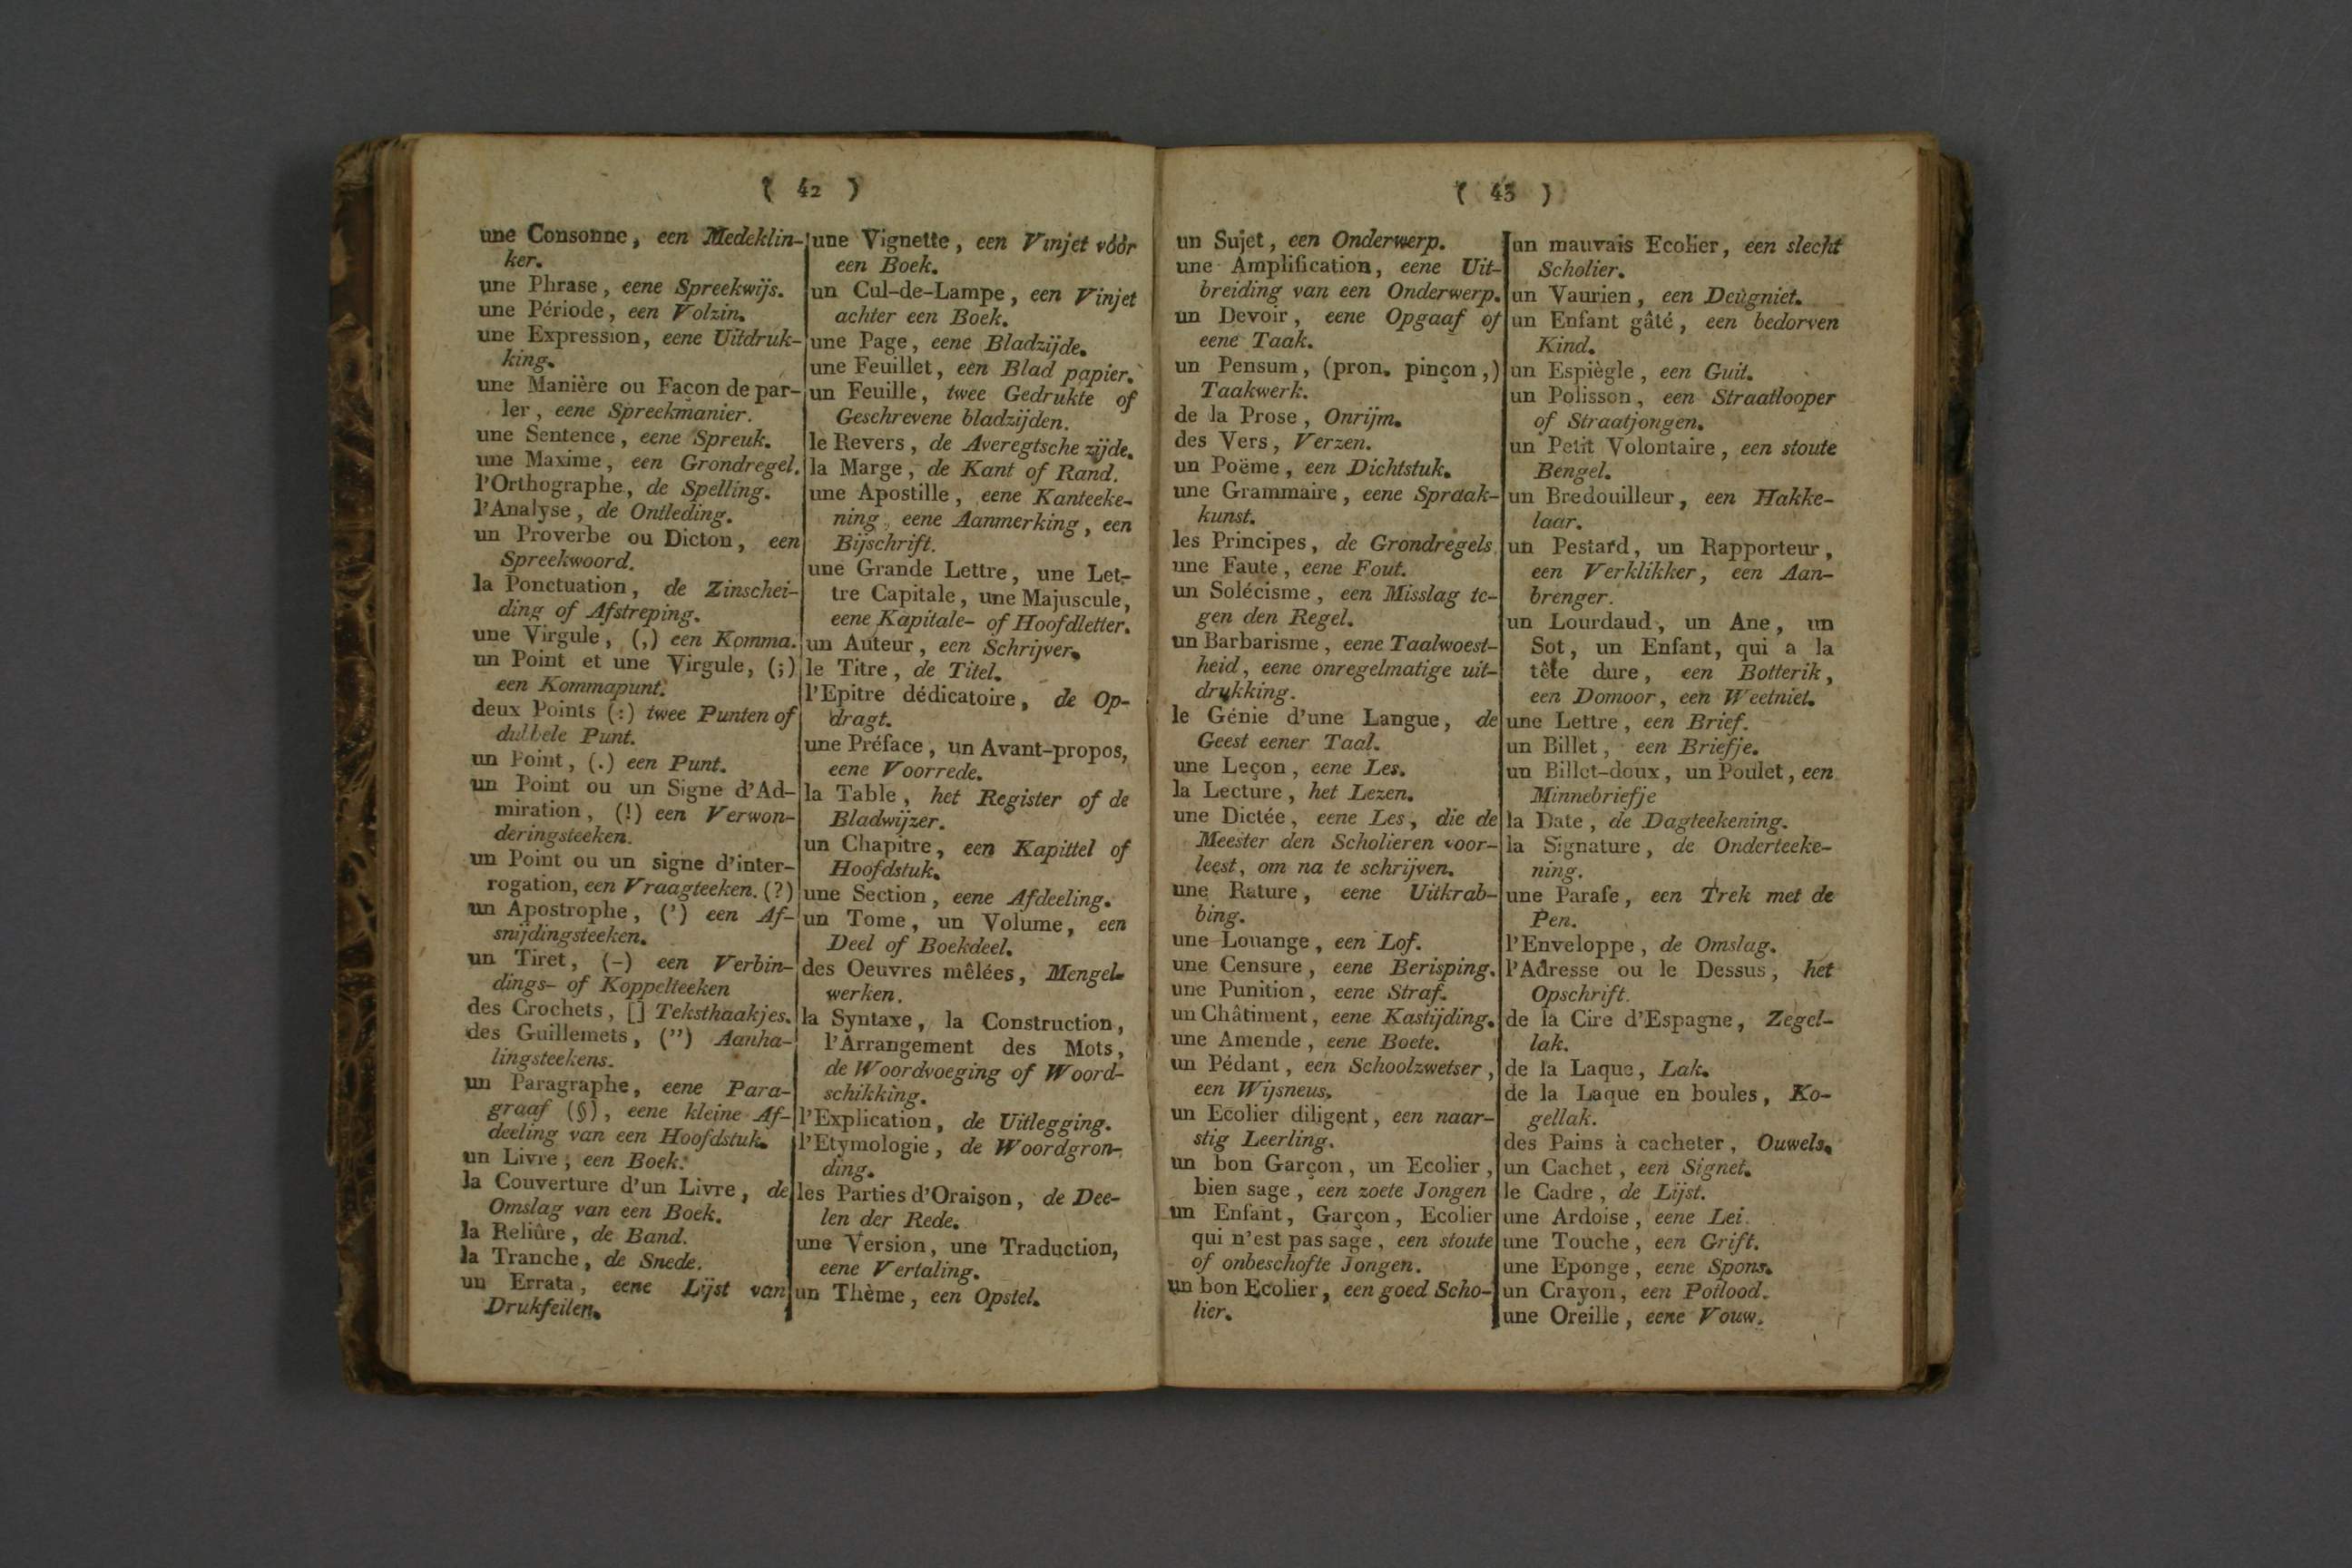 ( 42 )
une Consonne, een Medeklin-
ker.
une Phrase, eene Spreekwijs.
une Période, een Volzin.
une Expression, eene Uitdruk-
king.
une Manière ou Façon de par-
ler, eene Spreekmanier.
une Sentence, eene Spreuk.
une Maxime, een Grondregel.
l'Orthographe, de Spelling.
l'Analyse, de Ontleding.
un Proverbe ou Dicton, een
Spreekwoord.
la Ponctuation, de Zinschei-
ding of Afstreping.
une Virgule, (,) een Komma.
un Point et une Virgule, (;)
een Kommapunt.
deux Points (:) twee Punten of
dubbele Punt.
un Point, (.) een Punt.
un Point ou un Signe d'Ad-
miration, (!) een Verwon-
deringsteeken.
un Point ou un signe d'inter-
rogation, een Vraagteeken. (?)
un Apostrophe, (') een Af-
snijdingsteeken.
un Tiret, (-) een Verbin-
dings- of Koppelteeken
des Crochets, [] Teksthaakjes.
des Guillemets, (”) Aanha-
lingsteekens.
un Paragraphe, eene Para-
graaf (§), eene kleine Af-
deeling van een Hoofdstuk.
un Livre, een Boek.
la Couverture d'un Livre, de
Omslag van een Boek.
la Reliûre, de Band.
la Tranche, de Snede.
un Errata, eene Lijst van
Drukfeilen.
une Vignette, een Vinjet vóór
een Boek.
un Cul-de-Lampe, een Vinjet
achter een Boek.
une Page, eene Bladzijde.
une Feuillet, een Blad papier.
un Feuille, twee Gedrukte of
Geschrevene bladzijden.
le Revers, de Averegtsche zijde.
la Marge, de Kant of Rand.
une Apostille, eene Kanteeke-
ning, eene Aanmerking, een
Bijschrift.
une Grande Lettre, une Let-
tre Capitale, une Majuscule,
eene Kapitale- of Hoofdletter.
un Auteur, een Schrijver.
le Titre, de Titel.
l'Epitre dédicatoire, de Op-
dragt.
une Préface, un Avant-propos,
eene Voorrede.
la Table, het Register of de
Bladwijzer.
un Chapitre, een Kapittel of
Hoofdstuk.
une Section, eene Afdeeling.
un Tome, un Volume, een
Deel of Boekdeel.
des Oeuvres mêlées, Mengel-
werken.
la Syntaxe, la Construction,
l'Arrangement des Mots,
de Woordvoeging of Woord-
schikking.
l'Explication, de Uitlegging.
l'Etymologie, de Woordgron-
ding.
les Parties d'Oraison, de Dee-
len der Rede.
une Version, une Traduction,
eene Vertaling.
un Thème, een Opstel.
( 43 )
un Sujet, een Onderwerp.
une Amplification, eene Uit-
breiding van een Onderwerp.
un Devoir, eene Opgaaf of
eene Taak.
un Pensum, (pron. pinçon,)
Taakwerk.
de la Prose, Onrijm.
des Vers, Verzen.
un Poëme, een Dichtstuk.
une Grammaire, eene Spraak-
kunst.
les Principes, de Grondregels
une Faute, eene Fout.
un Solécisme, een Misslag te-
gen den Regel.
un Barbarisme, eene Taalwoest-
heid, eene onregelmatige uit-
drukking.
le Génie d'une Langue, de
Geest eener Taal.
une Leçon, eene Les.
la Lecture, het Lezen.
une Dictée, eene Les, die de
Meester den Scholieren voor-
leest, om na te schrijven.
une Rature, eene Uitkrab-
bing.
une Louange, een Lof.
une Censure, eene Berisping.
une Punition, eene Straf.
un Châtiment, eene Kastijding.
une Amende, eene Boete.
un Pédant, een Schoolzwetser,
een Wijsneus.
un Ecolier diligent, een naar-
stig Leerling.
un bon Garçon, un Ecolier,
bien sage, een zoete Jongen
un Enfant, Garçon, Ecolier
qui n'est pas sage, een stoute
of onbeschofte Jongen.
un bon Ecolier, een goed Scho-
lier.
un mauvais Ecolier, een slecht
Scholier.
un Vaurien, een Deugniet.
un Enfant gâté, een bedorven
Kind.
un Espiègle, een Guit.
un Polisson, een Straatlooper
of Straatjongen.
un Petit Volontaire, een stoute
Bengel.
un Bredouilleur, een Hakke-
laar.
un Pestard, un Rapporteur,
een Verklikker, een Aan-
brenger.
un Lourdaud, un Ane, un
Sot, un Enfant, qui a la
tête dure, een Botterik,
een Domoor, een Weetniet.
une Lettre, een Brief.
un Billet, een Briefje.
un Billet-doux, un Poulet, een
Minnebriefje
la Date, de Dagteekening.
la Signature, de Onderteeke-
ning.
une Parafe, een Trek met de
Pen.
l'Enveloppe, de Omslag.
l'Adresse ou le Dessus, het
Opschrift.
de la Cire d'Espagne, Zegel-
lak.
de la Laque, Lak.
de la Laque en boules, Ko-
gellak.
des Pains à cacheter, Ouwels.
un Cachet, een Signet.
le Cadre, de Lijst.
une Ardoise, eene Lei.
une Touche, een Grift.
une Eponge, eene Spons.
un Crayon, een Potlood.
une Oreille, eene Vouw.